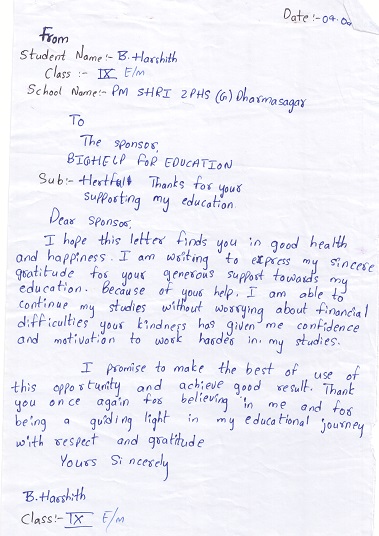 Date :- 04.00
From
Student Name:- B. Harshith
Class :- IX E/M
School Name:- PM SHRI ZPHS (G) Dharmasagar
To
The sponsor,
BIGHELP FOR EDUCATION
Sub:- Thanks for your
supporting my education.
Dear Sponsor,
I hope this letter finds you in good health
and happiness. I am writing to express my sincere
gratitude for your generous support towards my
education. Because of your help. I am able to
continue my studies without worrying about financial
difficulties your kindness has given me confidence
and motivation to work harder in my studies.
I promise to make the best of use of
this opportunity and achieve good result. Thank
you once again for believing in me and for
being a guiding light in my educational journey
with respect and gratitude
Yours Sincerely
B. Harshith
Class:- IX E/M